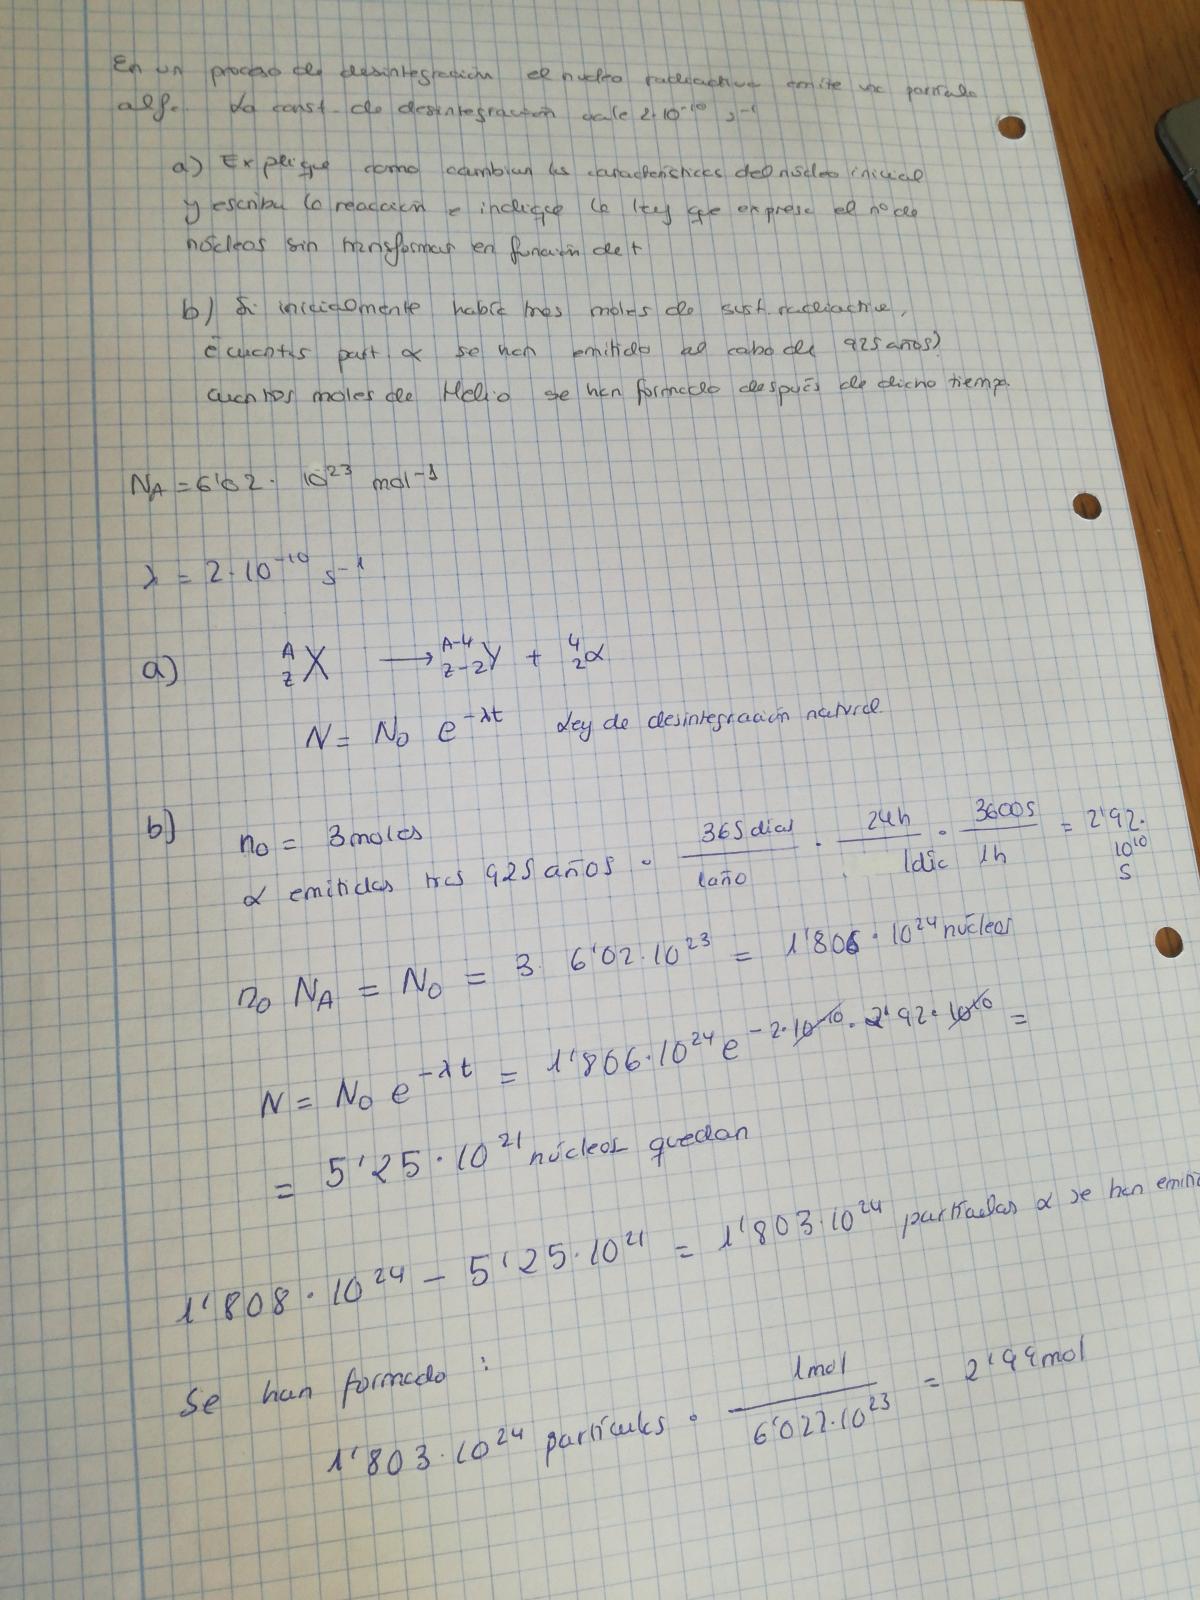 En un proceso de desintegración el nucleo radiactivo emite una partícula
alfa. La const. de desintegración vale 2·10⁻¹⁰ s⁻¹
a) Explique como cambian las características del núcleo inicial
y escriba la reacción e indique la ley que exprese el nº de
núcleos sin transformar en función de t
b) Si inicialmente había tres moles de sust. radiactiva,
¿cuantas part α se han emitido al cabo de 925 años?
cuantos moles de Helio se han formado después de dicho tiempo.
N_A = 6'02 · 10²³ mol⁻¹
λ = 2·10⁻¹⁰ s⁻¹
a) ᴬ_Z X ⟶ ᴬ⁻⁴_Z-2 Y + ⁴₂α
N = N₀ e^-λt Ley de desintegración natural
b) n₀ = 3 moles
α emitidas tras 925 años · 365 dias / 1 año · 24h / 1 dia · 3600s / 1h = 2'92 · 10¹⁰ s
n₀ N_A = N₀ = 3 · 6'02·10²³ = 1'806 · 10²⁴ núcleos
N = N₀ e^-λt = 1'806·10²⁴ e^-2·10⁻¹⁰·2'92·10¹⁰ =
= 5'25·10²¹ núcleos quedan
1'808·10²⁴ − 5'25·10²¹ = 1'803·10²⁴ partículas α se han emitid
Se han formado :
1'803·10²⁴ partículas · 1mol / 6'022·10²³ = 2'99 mol